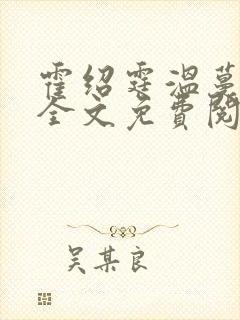 霍绍霆温蔓
全文免费阅
吴某良